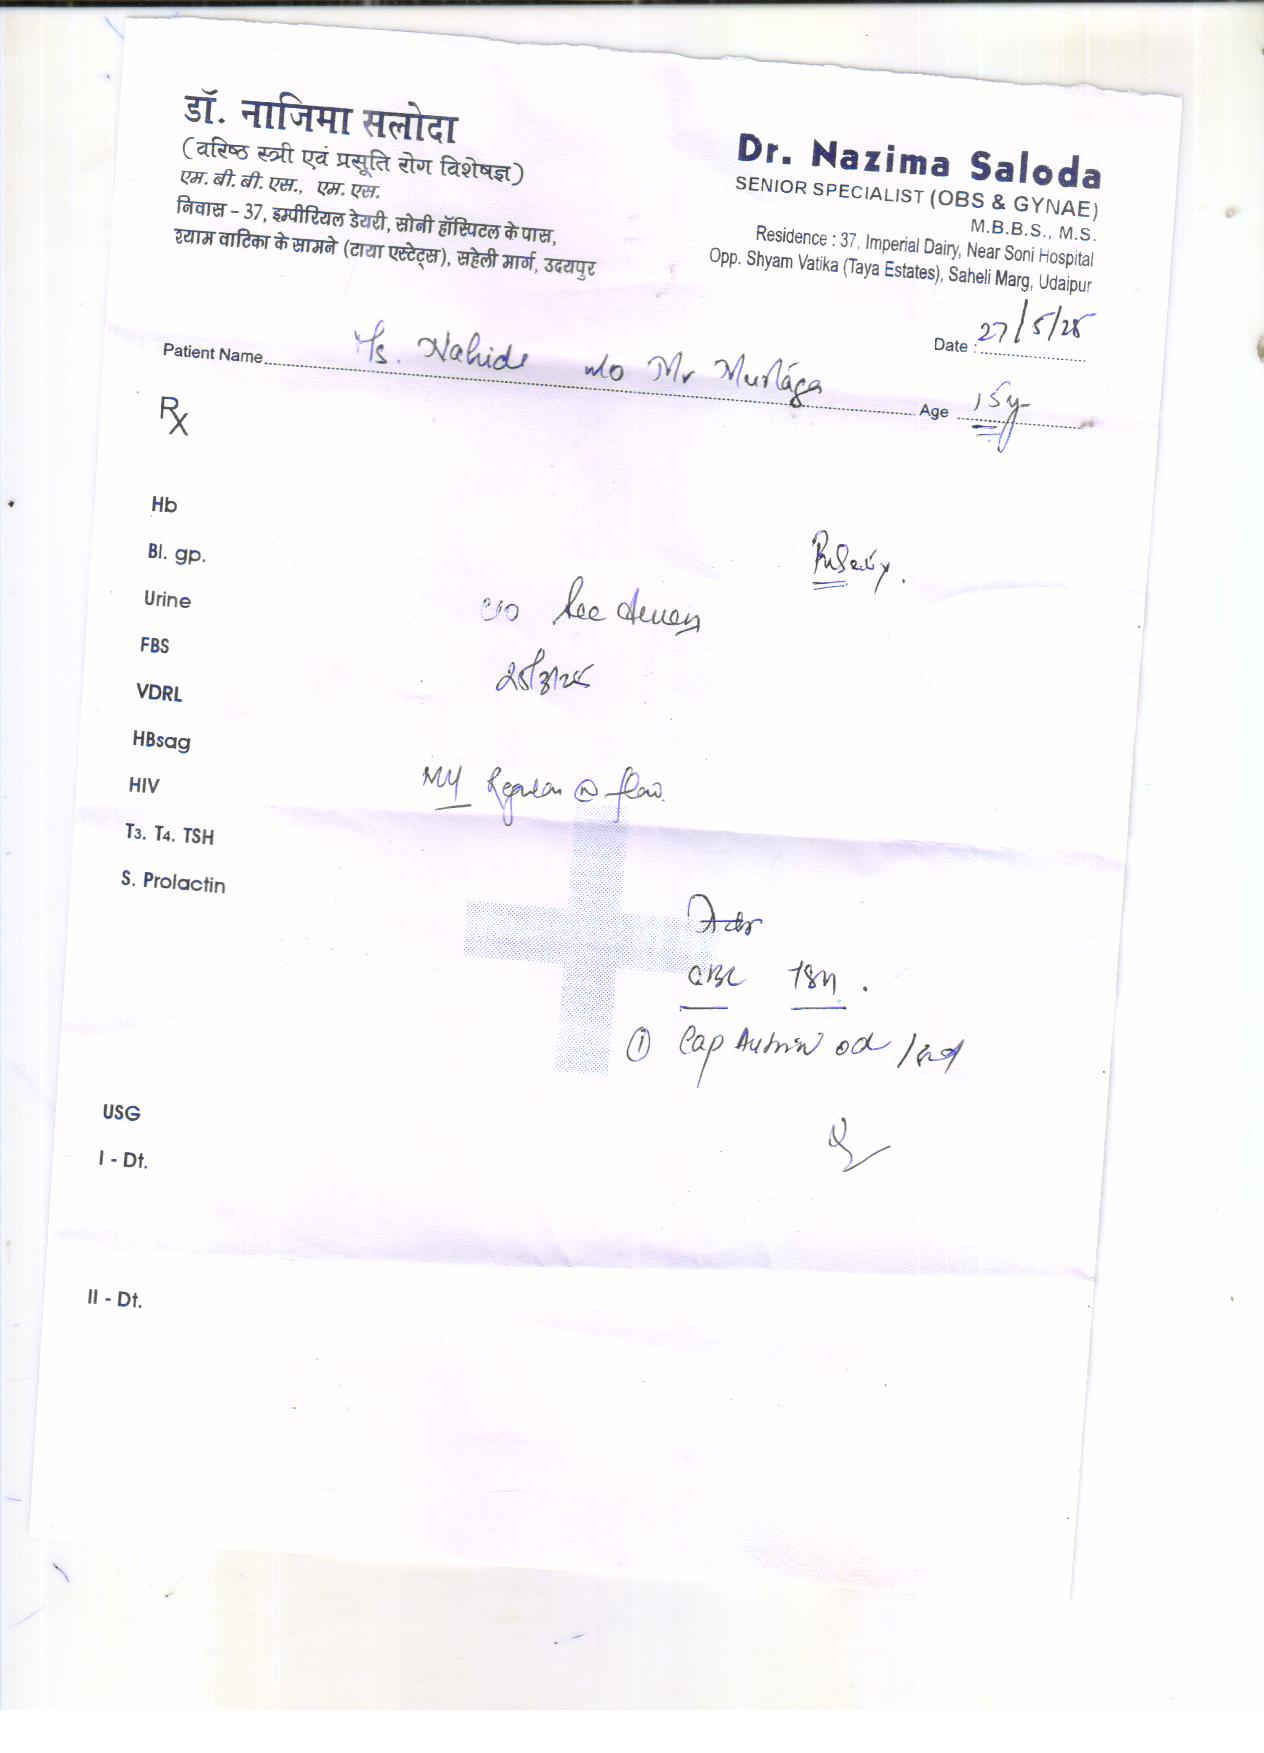 डॉ. नाजिमा सलोदा
(वरिष्ठ स्त्री एवं प्रसूति रोग विशेषज्ञ)
एम. बी. बी. एस., एम. एस.
निवास – 37, इम्पीरियल डेयरी, सोनी हॉस्पिटल के पास,
श्याम वाटिका के सामने (टाया एस्टेट्स), सहेली मार्ग, उदयपुर
Dr. Nazima Saloda
SENIOR SPECIALIST (OBS & GYNAE)
M.B.B.S., M.S.
Residence : 37, Imperial Dairy, Near Soni Hospital
Opp. Shyam Vatika (Taya Estates), Saheli Marg, Udaipur
Date : 27/5/25
Patient Name Mr
Age 15y
Rx
Hb
Bl. gp.
Urine
FBS
VDRL
HBsag
HIV
T3. T4. TSH
S. Prolactin
MH Regular flow
Adv
CBC TSH.
① Cap od
USG
I - Dt.
II - Dt.